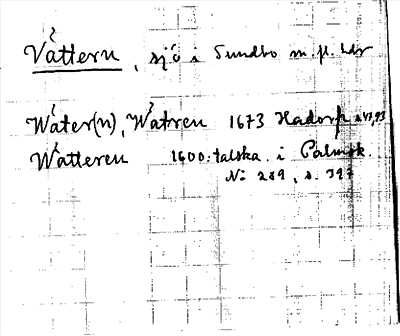 Vättern, sjö i Sundbo m. fl. hdr
Wåter(n), Wåtren 1673 Hadorph s. 47, 93
Wåtteren 1600-talska i Palmsk.
N: 289, s. 397